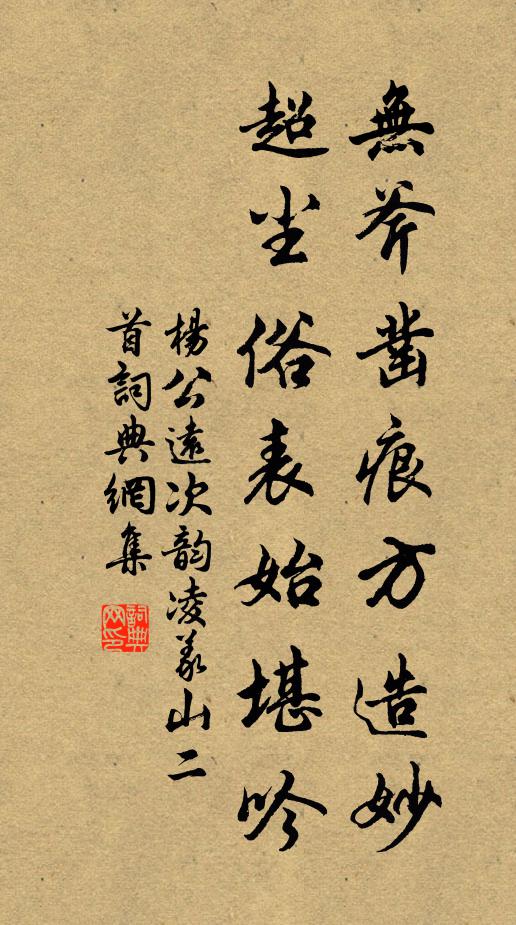 無斧鑿痕方造妙
超尘俗表始堪吟
楊公遠次韵凌義山二
首詞典網集
詞典
网印